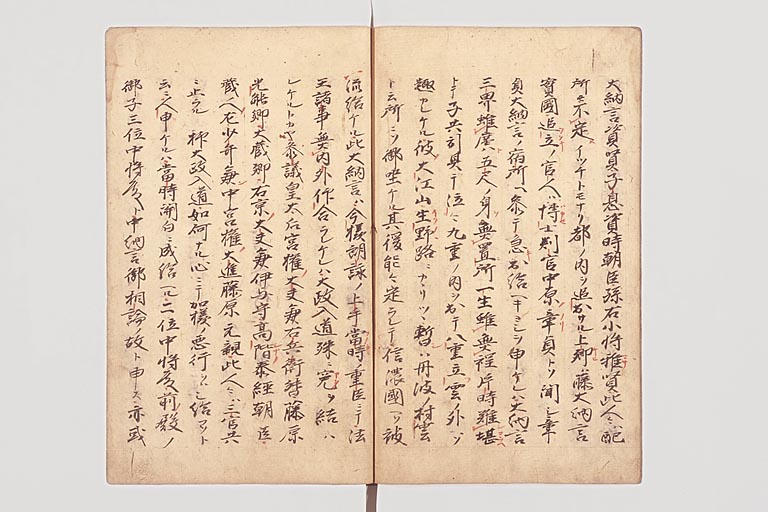 大納言資賢子息資時朝臣孫右少将雅賢此人々配
所ヲ不定イツチトモナク都ノ内ヲ追出サル上卿ハ藤大納言
実國追立ノ官人ハ博士判官中原章貞トソ聞シ章
貞大納言ノ宿所ヘ参テ急出給ヘキヨシヲ申ケレハ大納言
三界雖広五尺ノ身無置所一生雖無程片時難堪
トテ子共引具テ泣々九重ノ内ヲ出テ八重立雲ノ外ヘソ
趣レケル彼大江山生野路ニカヽリツヽ暫ハ丹波ノ村雲
ト云所ニソ御坐ケル其後能々定ラレテ信濃国ヘソ被
流給ケル此大納言ハ今様朗詠ノ上手當時ノ重臣ニテ法
王諸事無内外仰合ラレケレハ大政入道殊ニ宛ヲ結ハ
レケルトカヤ参議皇太后宮権大夫兼右兵衛督藤原
光能卿大蔵卿右京大夫兼伊与守高階泰経朝臣
蔵人左少弁兼中宮権大進藤原元親此人々ハ三官共
ニ止ラル抑大政入道如何ナル心ニテ加様ノ悪行ヲハシ給フソト
云ニ人申ケルハ當時関白ニ成給ヘル二位中将殿前殿ノ
御子三位中将殿ト中納言御相論ノ故ト申ス亦或